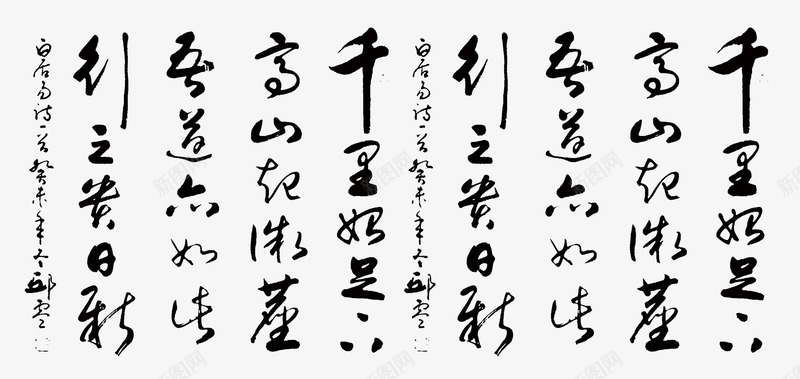 千里始足下
高山起微塵
吾道亦如此
行之貴日新
白居易诗一首癸未年冬邱零
千里始足下
高山起微塵
吾道亦如此
行之貴日新
白居易诗一首癸未年冬邱零